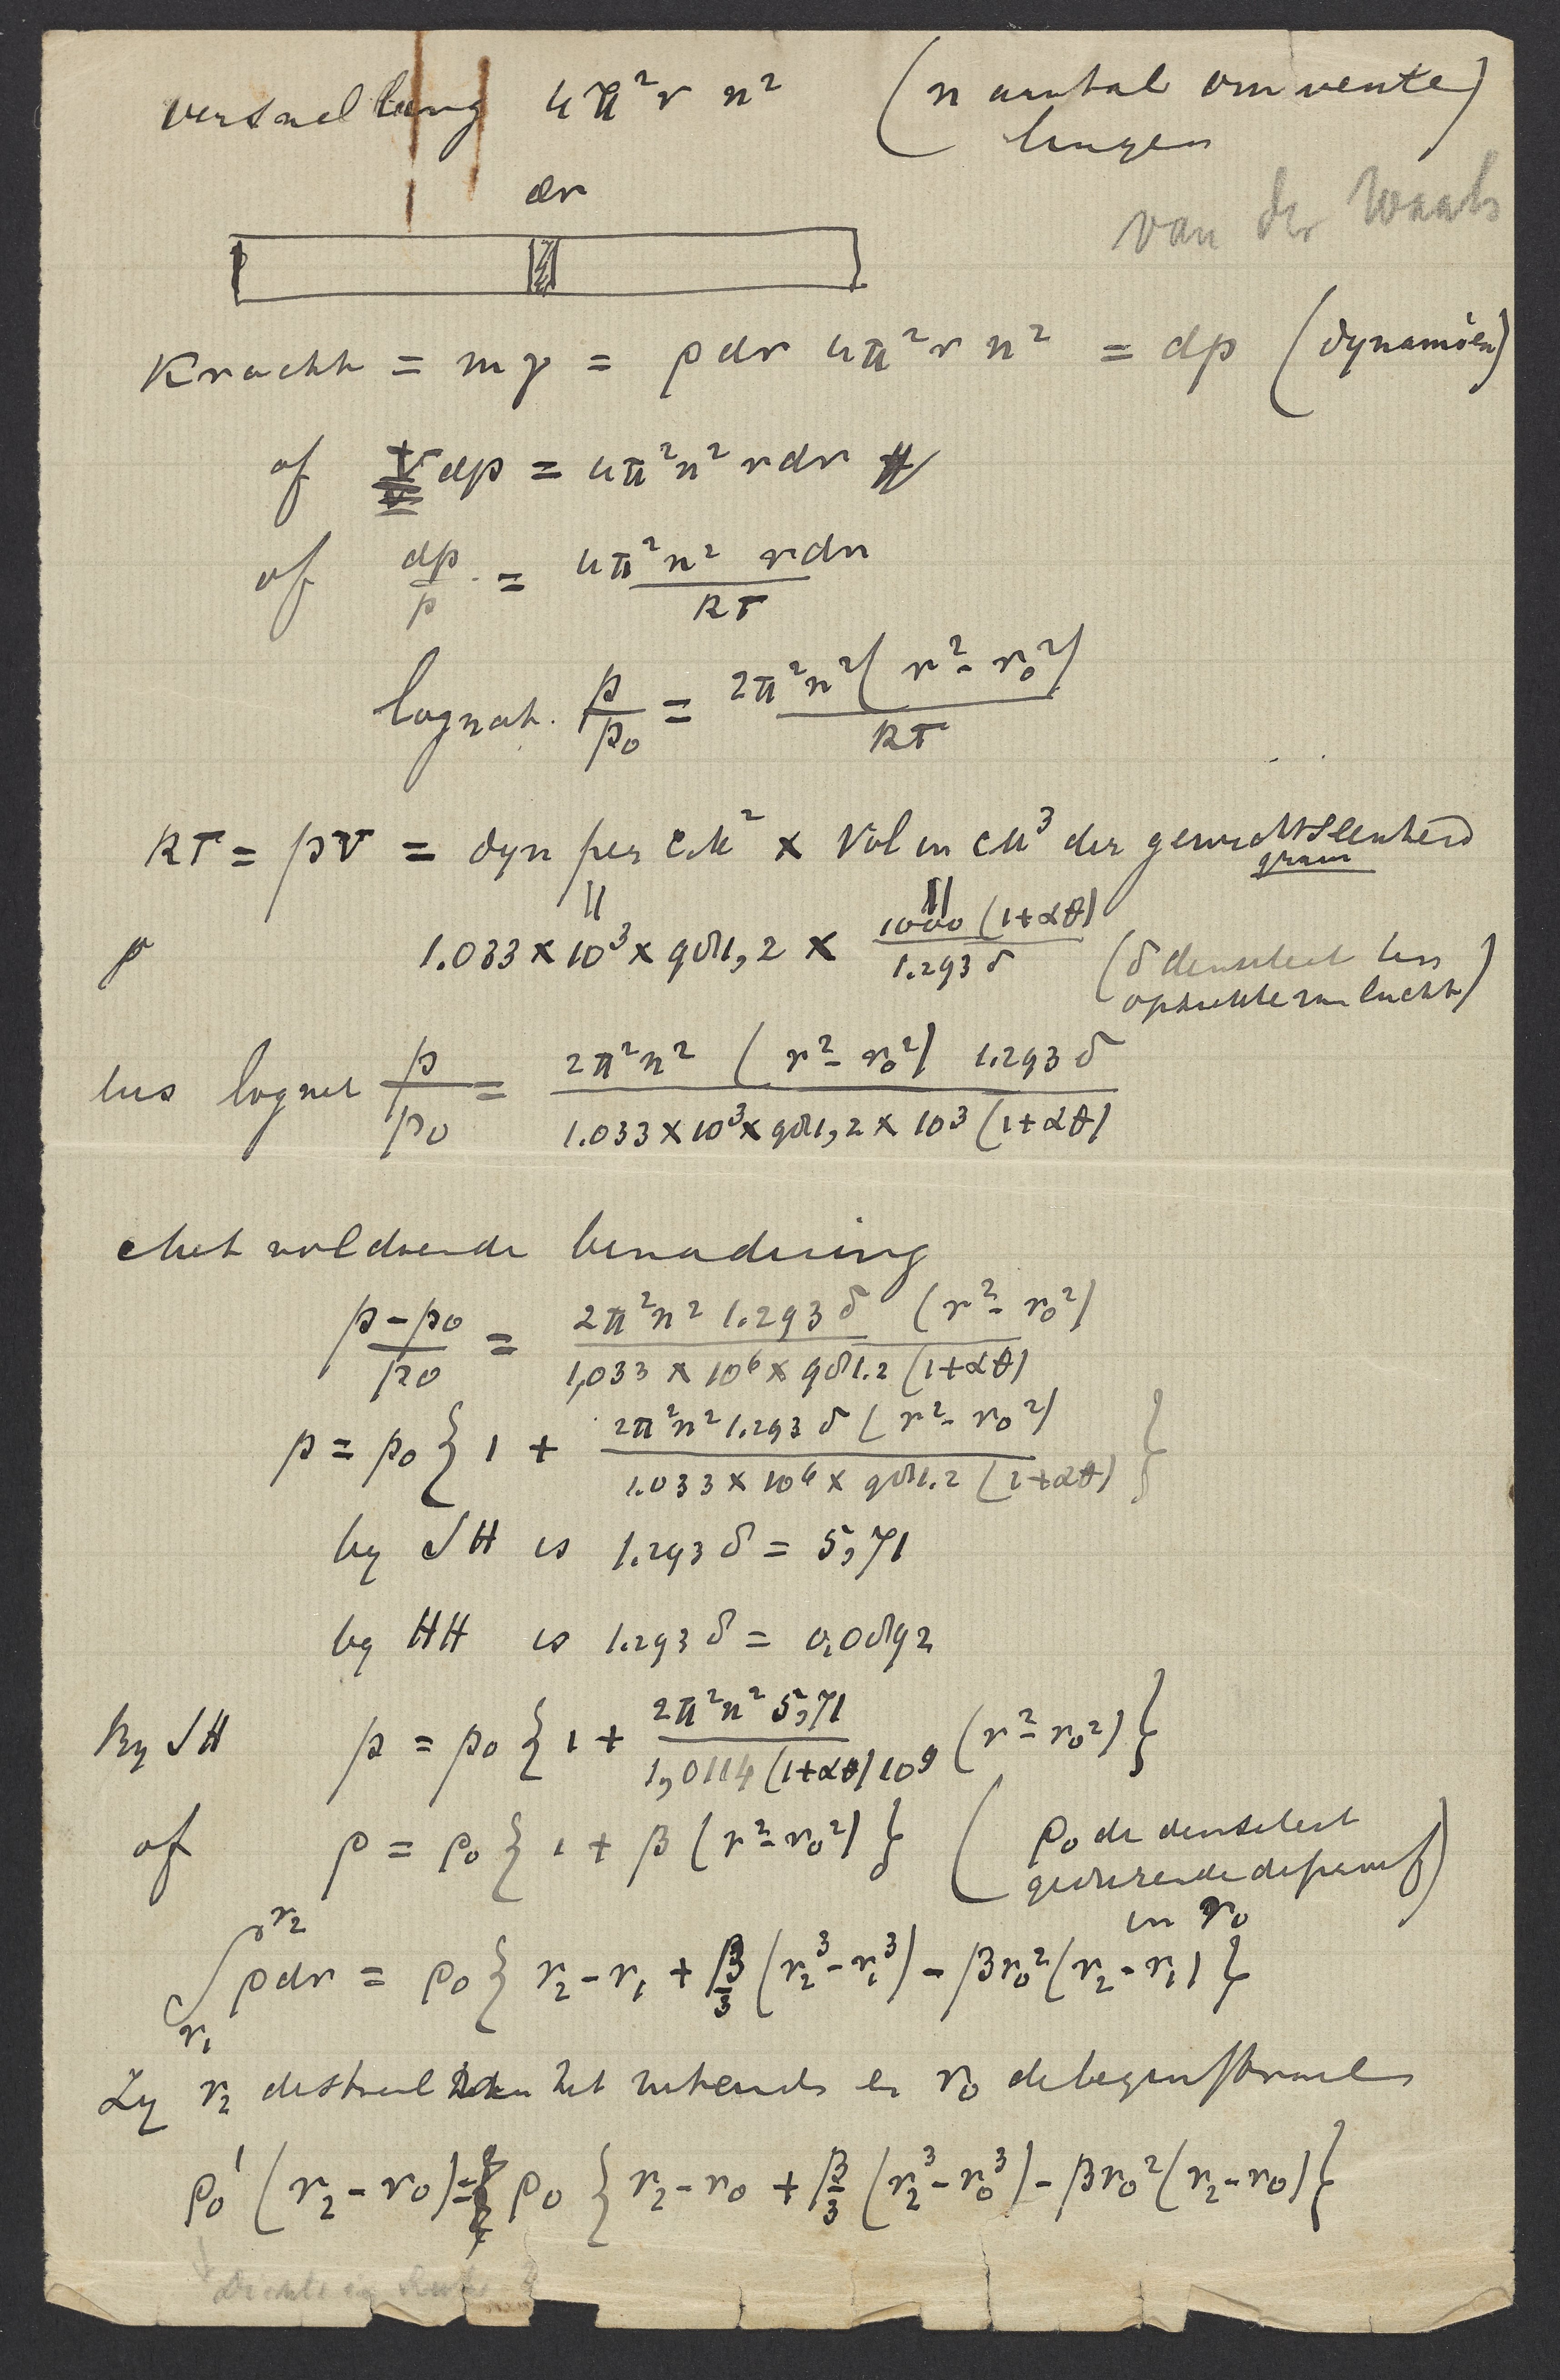 versnelling 4π²r n² (n aantal omwente
lingen)
dr
van der Waals
Kracht = mγ = ρdr 4π²r n² = dp (dynamiën)
of v dp = 4π²n² rdr
of dp/p = 4π²n² rdr / RT
lognat. p/p₀ = 2π²n²(r² - r₀²) / RT
RT = pv = dyn per cM² x Vol in cM³ der gewichtseenheid
gram
p 1.033 x 10³ x 981,2 x 1000 (1+αθ) / 1.293 δ (δ densiteit ten
opzichte van lucht)
dus lognat p/p₀ = 2π²n² (r² - r₀²) 1.293 δ / 1.033 x 10³ x 981,2 x 10³ (1+αθ)
Met voldoende benadering
p - p₀ / p₀ = 2π²n² 1.293 δ (r² - r₀²) / 1,033 x 10⁶ x 981.2 (1+αθ)
p = p₀ { 1 + 2π²n² 1.293 δ (r² - r₀²) / 1.033 x 10⁶ x 981.2 (1+αθ) }
by JH is 1.293 δ = 5,71
by HH is 1.293 δ = 0,0892
By JH p = p₀ { 1 + 2π²n² 5,71 / 1,0114 (1+αθ) 10⁹ (r² - r₀²) }
of ρ = ρ₀ { 1 + β (r² - r₀²) } (ρ₀ de densiteit
gedurende de proef
in r₀)
∫ r₁ r₂ ρdr = ρ₀ { r₂ - r₁ + β/3 (r₂³ - r₁³) - βr₀² (r₂ - r₁) }
Zy r₂ de straal van het uiteinde en r₀ de beginstraal
ρ₀' (r₂ - r₀) = ρ₀ { r₂ - r₀ + β/3 (r₂³ - r₀³) - βr₀² (r₂ - r₀) }